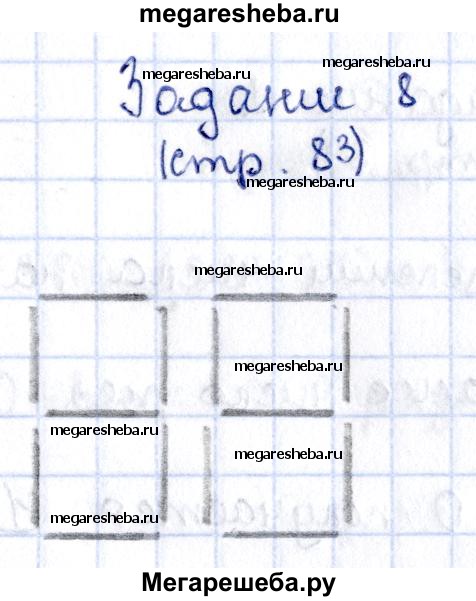 megaresheba.ru
megaresheba.ru
megaresheba.ru
Задание 8
(стр. 83)
megaresheba.ru
megaresheba.ru
megaresheba.ru
megaresheba.ru
megaresheba.ru
megaresheba.ru
Мегарешеба.ру